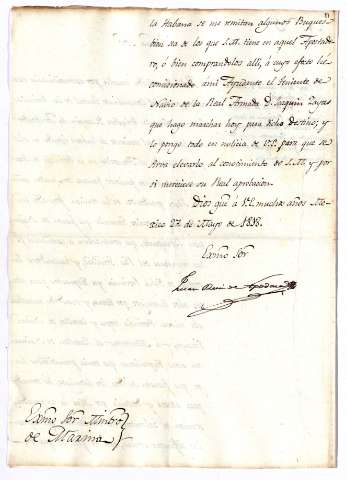 la Habana se me remitan algunos Buques
bien sea de los que S.M. tiene en aquel Apostade-
ro, ó bien comprandolos allí, á cuyo efecto he
comisionado á mi Ayudante el Teniente de
Navio de la Real Armada D. Joaquin Zayas
que hago marchar hoy para dicho destino; y
lo pongo todo en noticia de V.E. para que se
sirva elevarlo al conocimiento de S.M. y por
si mereciese su Real aprobacion.
Dios gue á V.E. muchos años Me-
xico 27 de Mayo de 1818.
Exmo Sor
Juan Ruiz de Apodaca
Exmo Sor Mintro
de Marina